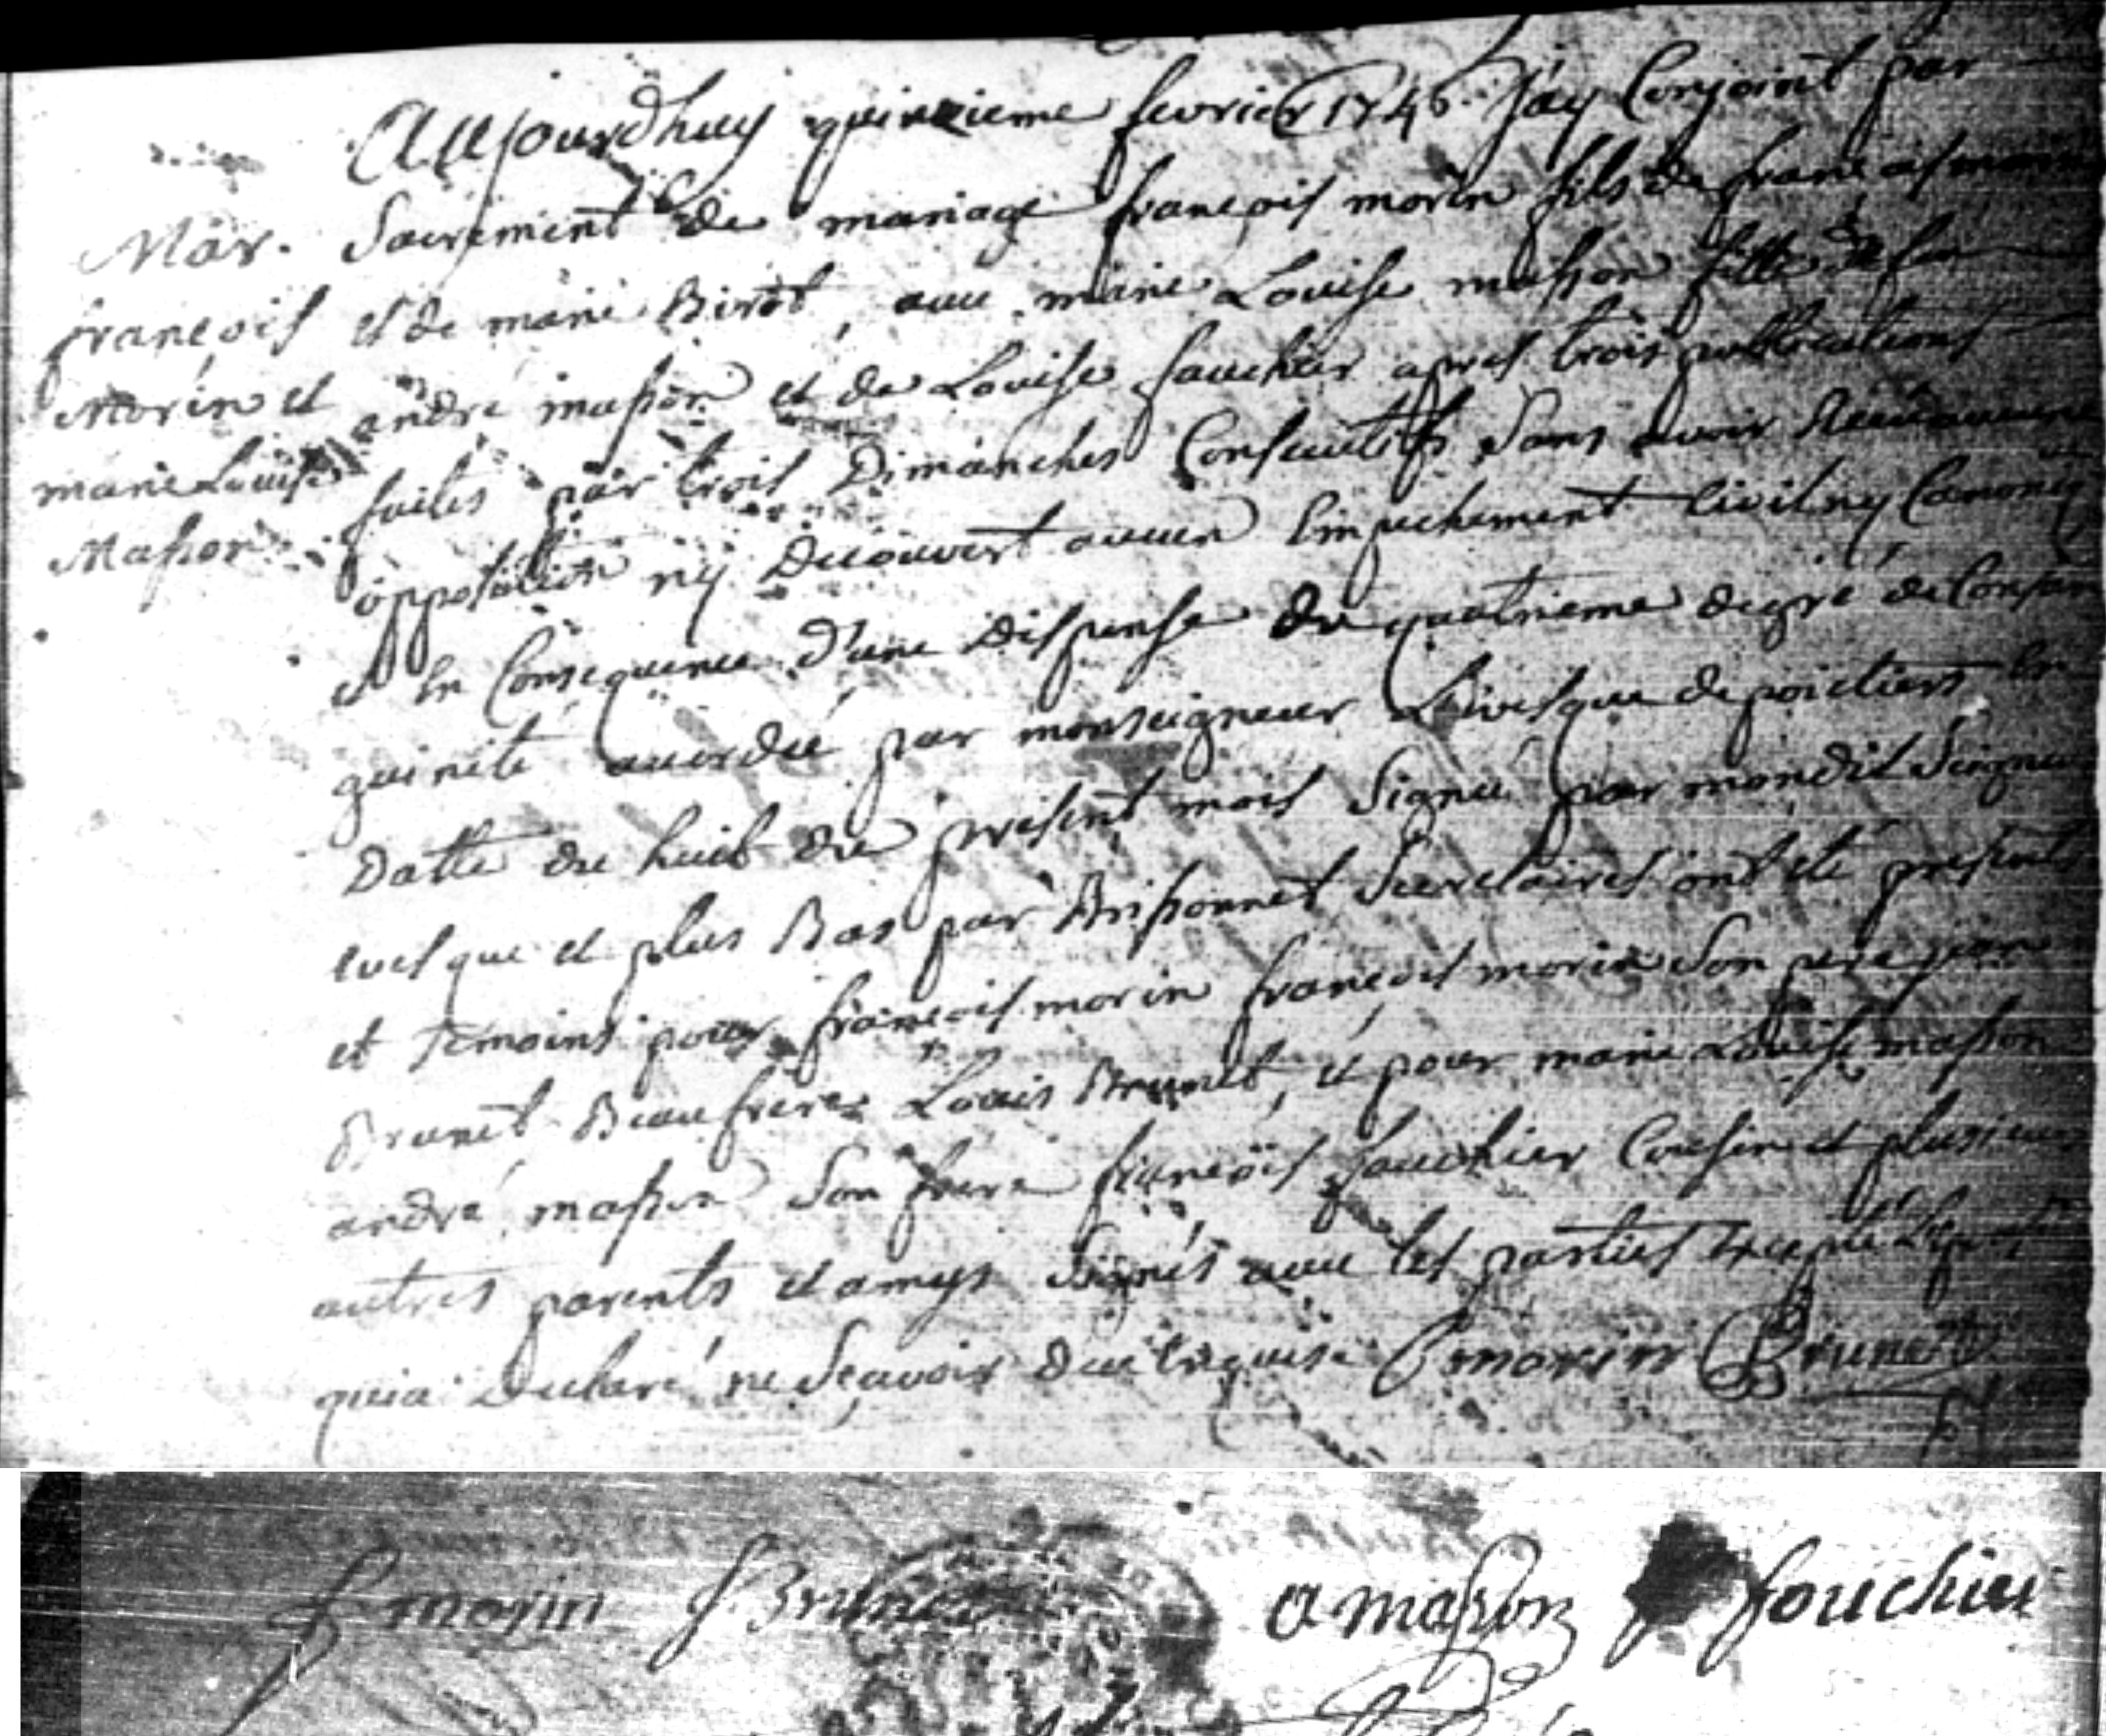 Aujourdhuy quinzieme fevrier 1746 J'ay Conjoint par
Mar. Sacrement de mariage françois morin fils de françois morin
françois et de marie Birot, avec marie Louise masson fille de feu
Morin et andré masson et de Louise fauchier apres trois publications
marie Louise faites par trois Dimanches Consecutifs Sans avoir
Masson opposition ny Decouvert aucun Empechement Civil ny Canoniq
et En Consequence d'une dispense du quatrieme degré de Consan
guinité accordée par monseigneur L'evesque de poictiers En
Datte du huit du present mois Signé par mondit Seigneur
evesque et plus Bas par Brissonnet Secretaires ont été presents
et Temoins pour françois morin françois morin Son pere
Brunet Beaufrere Louis Brunet, et pour marie Louise masson
andré masson Son frere françois fauchier Cousin et plusieurs
autres parents et amys Signés avec les parties Excepté
qui a Declaré ne Sçavoir de ce Enquise morin Brunet
f morin f. Brunet a masson fouchier